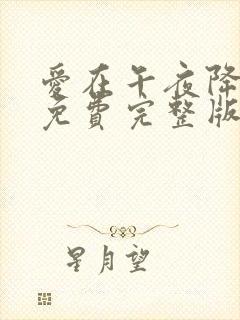 愛在午夜降
免費完整版
星月望